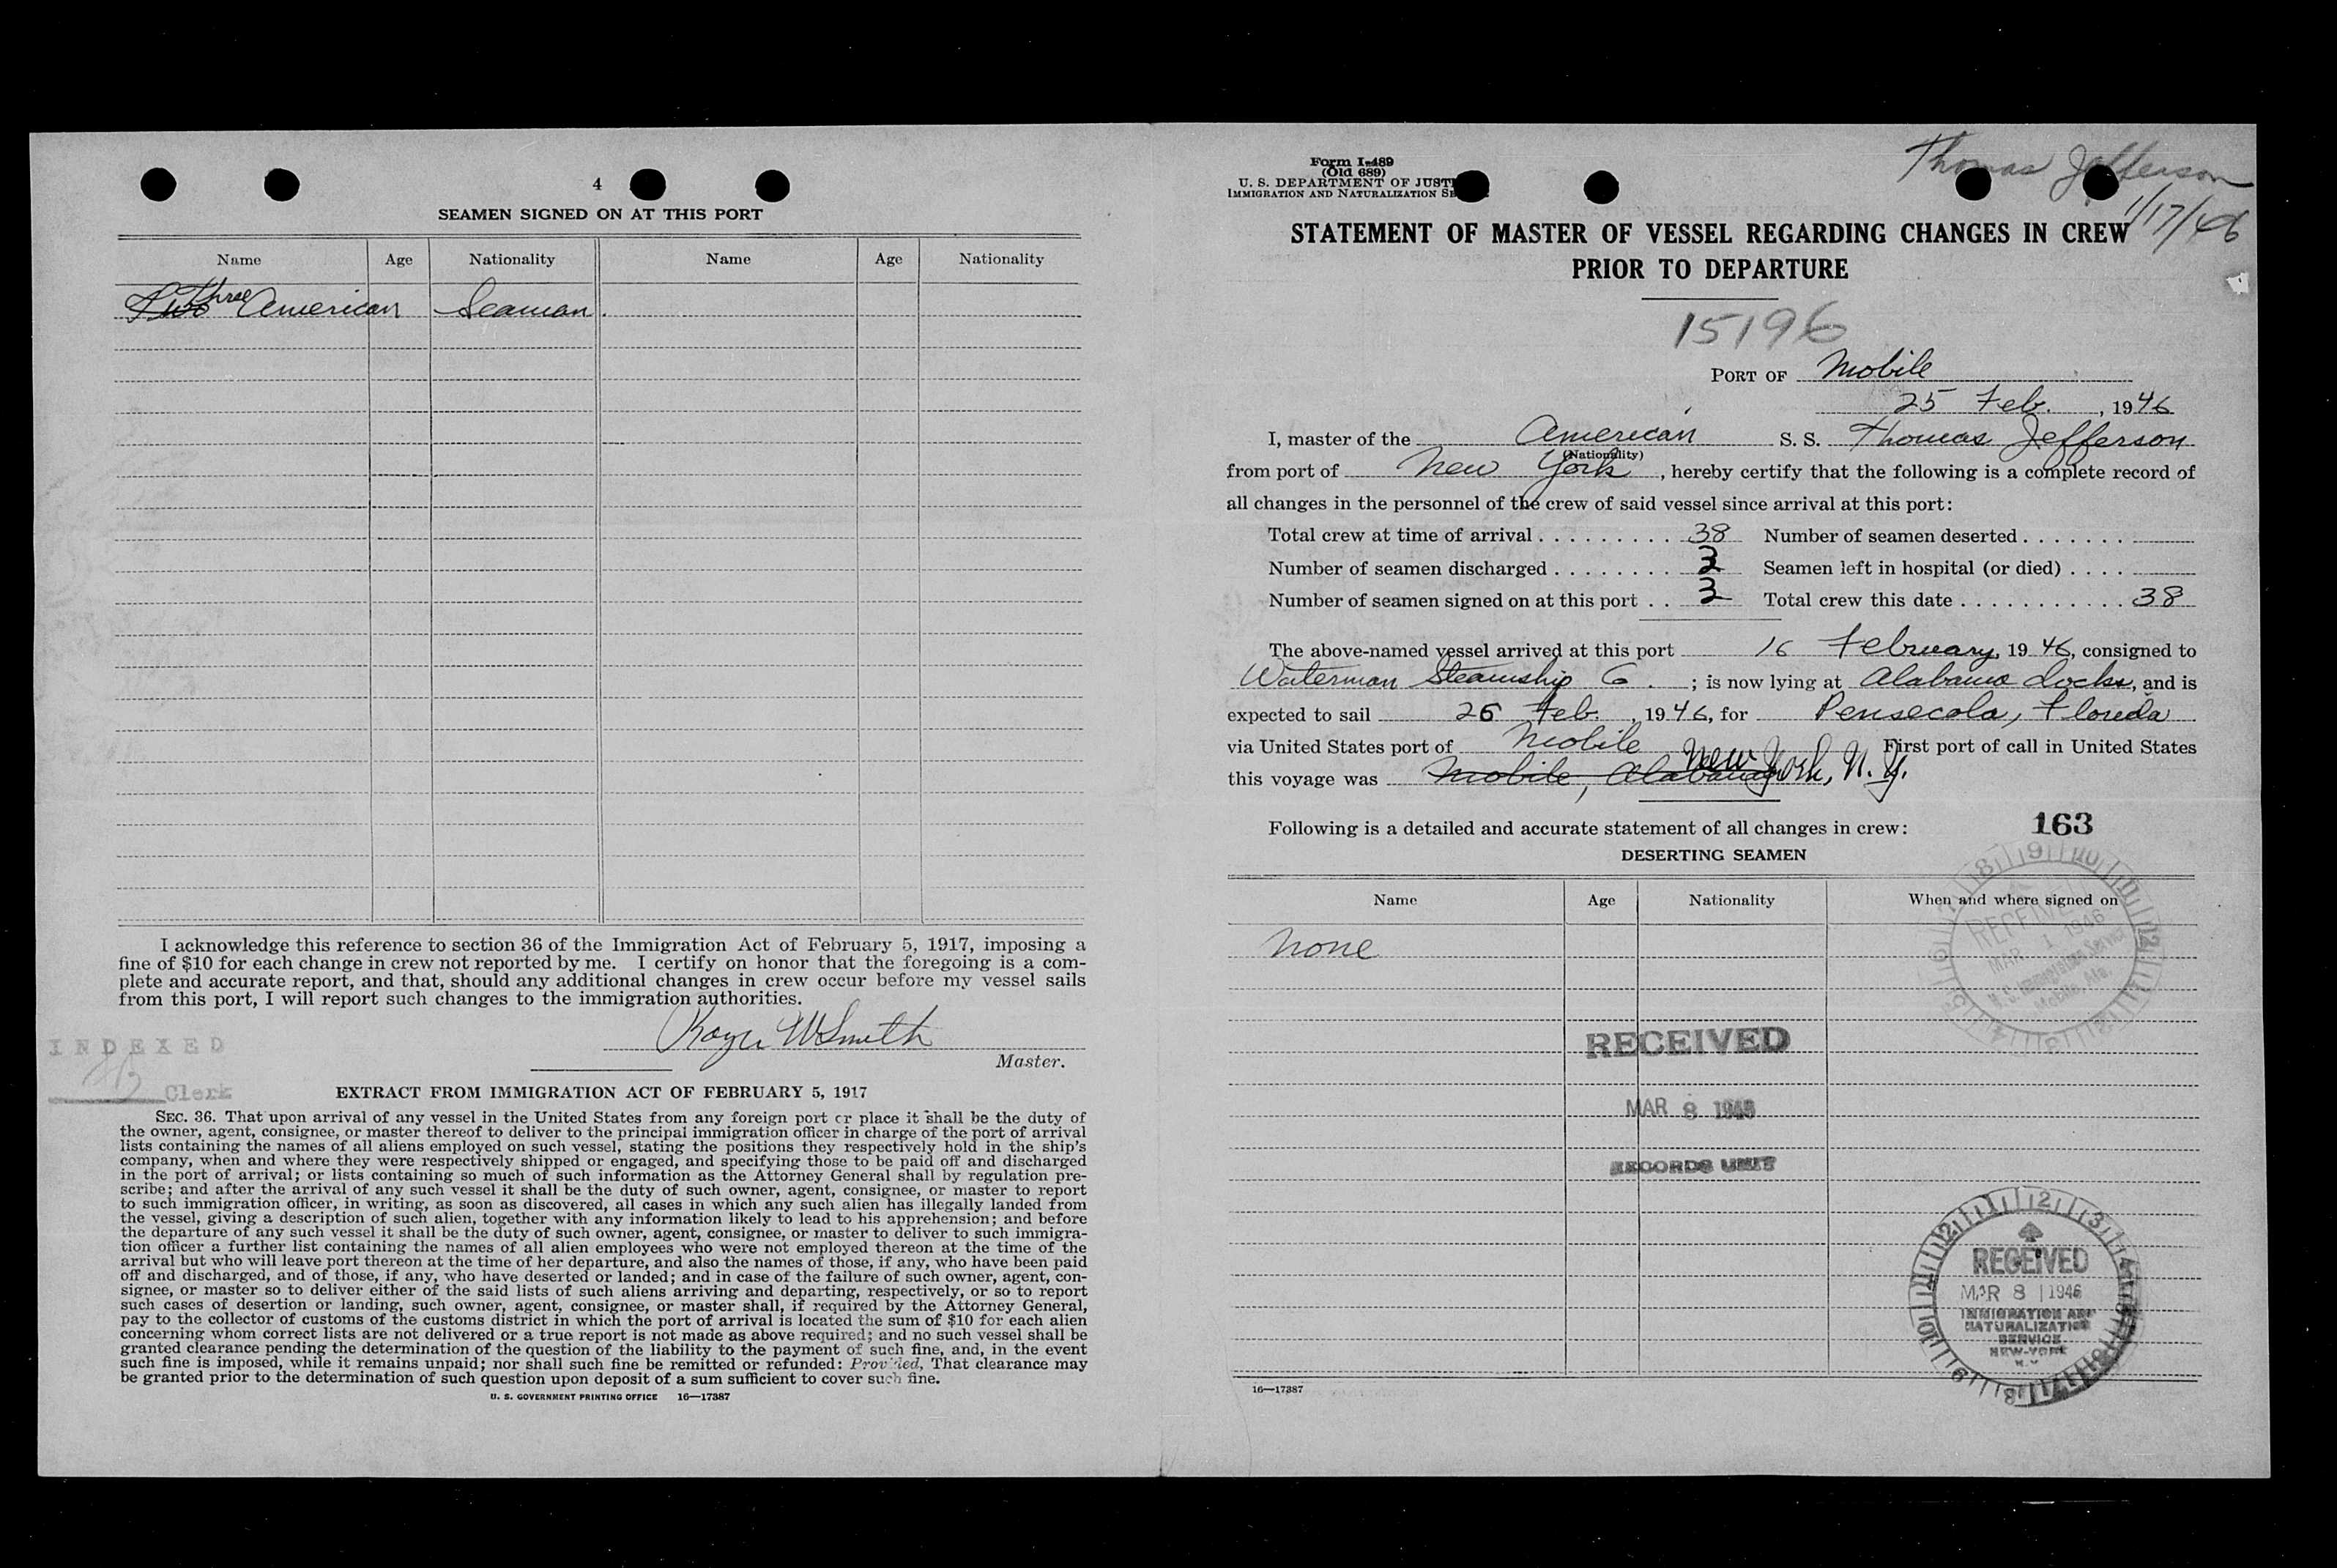 4
SEAMEN SIGNED ON AT THIS PORT
Name Age Nationality Name Age Nationality
Two Three American Seaman.
I acknowledge this reference to section 36 of the Immigration Act of February 5, 1917, imposing a
fine of $10 for each change in crew not reported by me. I certify on honor that the foregoing is a com-
plete and accurate report, and that, should any additional changes in crew occur before my vessel sails
from this port, I will report such changes to the immigration authorities.
Roger W Smith
Master.
INDEXED
Clerk
EXTRACT FROM IMMIGRATION ACT OF FEBRUARY 5, 1917
SEC. 36. That upon arrival of any vessel in the United States from any foreign port or place it shall be the duty of
the owner, agent, consignee, or master thereof to deliver to the principal immigration officer in charge of the port of arrival
lists containing the names of all aliens employed on such vessel, stating the positions they respectively hold in the ship's
company, when and where they were respectively shipped or engaged, and specifying those to be paid off and discharged
in the port of arrival; or lists containing so much of such information as the Attorney General shall by regulation pre-
scribe; and after the arrival of any such vessel it shall be the duty of such owner, agent, consignee, or master to report
to such immigration officer, in writing, as soon as discovered, all cases in which any such alien has illegally landed from
the vessel, giving a description of such alien, together with any information likely to lead to his apprehension; and before
the departure of any such vessel it shall be the duty of such owner, agent, consignee, or master to deliver to such immigra-
tion officer a further list containing the names of all alien employees who were not employed thereon at the time of the
arrival but who will leave port thereon at the time of her departure, and also the names of those, if any, who have been paid
off and discharged, and of those, if any, who have deserted or landed; and in case of the failure of such owner, agent, con-
signee, or master so to deliver either of the said lists of such aliens arriving and departing, respectively, or so to report
such cases of desertion or landing, such owner, agent, consignee, or master shall, if required by the Attorney General,
pay to the collector of customs of the customs district in which the port of arrival is located the sum of $10 for each alien
concerning whom correct lists are not delivered or a true report is not made as above required; and no such vessel shall be
granted clearance pending the determination of the question of the liability to the payment of such fine, and, in the event
such fine is imposed, while it remains unpaid; nor shall such fine be remitted or refunded: Provided, That clearance may
be granted prior to the determination of such question upon deposit of a sum sufficient to cover such fine.
U. S. GOVERNMENT PRINTING OFFICE 16—17387
Form I-489
(Old 689)
U. S. DEPARTMENT OF JUSTI
IMMIGRATION AND NATURALIZATION SE
Thomas Jefferson
1/17/46
STATEMENT OF MASTER OF VESSEL REGARDING CHANGES IN CREW
PRIOR TO DEPARTURE
15196
PORT OF Mobile
25 Feb. , 1946
I, master of the American S. S. Thomas Jefferson
(Nationality)
from port of New York , hereby certify that the following is a complete record of
all changes in the personnel of the crew of said vessel since arrival at this port:
Total crew at time of arrival . . . . . . . . . 38 Number of seamen deserted . . . . . . .
Number of seamen discharged . . . . . . . . 3 Seamen left in hospital (or died) . . . .
Number of seamen signed on at this port . . 3 Total crew this date . . . . . . . . . . . 38
The above-named vessel arrived at this port 16 February, 19 46, consigned to
Waterman Steamship Co. ; is now lying at Alabama docks, and is
expected to sail 26 Feb. , 19 46, for Pensecola, Floreda
via United States port of Mobile First port of call in United States
this voyage was Mobile, Alabama New York, N. Y.
Following is a detailed and accurate statement of all changes in crew: 163
DESERTING SEAMEN
Name Age Nationality When and where signed on
None
RECEIVED
MAR 1 1946
U. S. Immigration Service
Mobile, Ala.
RECEIVED
MAR 8 1946
RECORDS UNIT
RECEIVED
MAR 8 1946
IMMIGRATION AND
NATURALIZATION
SERVICE
NEW-YORK
N. Y
16—17387